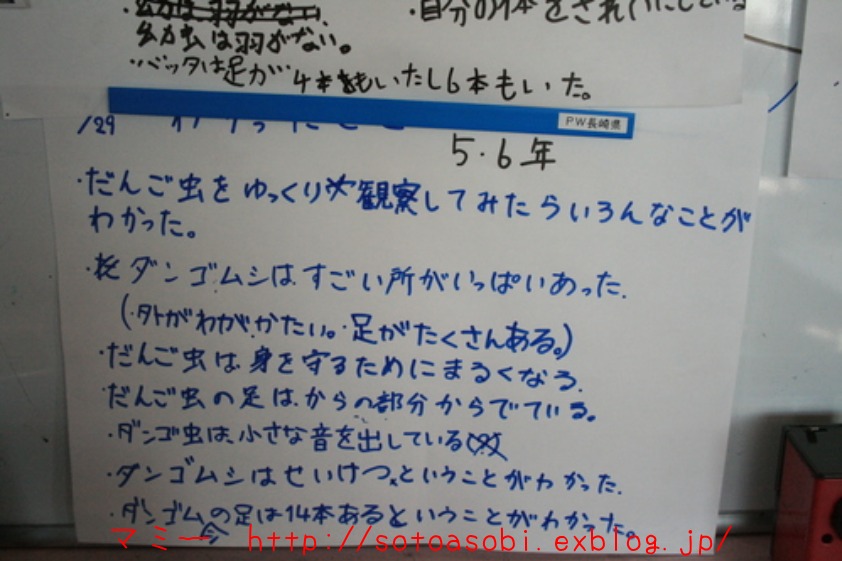 幼虫は羽がない。
・自分の体を
・バッタは足が4本もいたし6本もいた。
PW長崎県
/29 わかったこと
5・6年
・だんご虫をゆっくり観察してみたらいろんなことが
わかった。
・ダンゴムシはすごい所がいっぱいあった.
(・外がわがかたい。・足がたくさんある。)
・だんご虫は身を守るためにまるくなる.
・だんご虫の足はからの部分からでている。
・ダンゴ虫は小さな音を出している
・ダンゴムシはせいけつということがわかった.
・ダンゴムシの足は14本あるということがわかった。
マミー http://sotoasobi.exblog.jp/